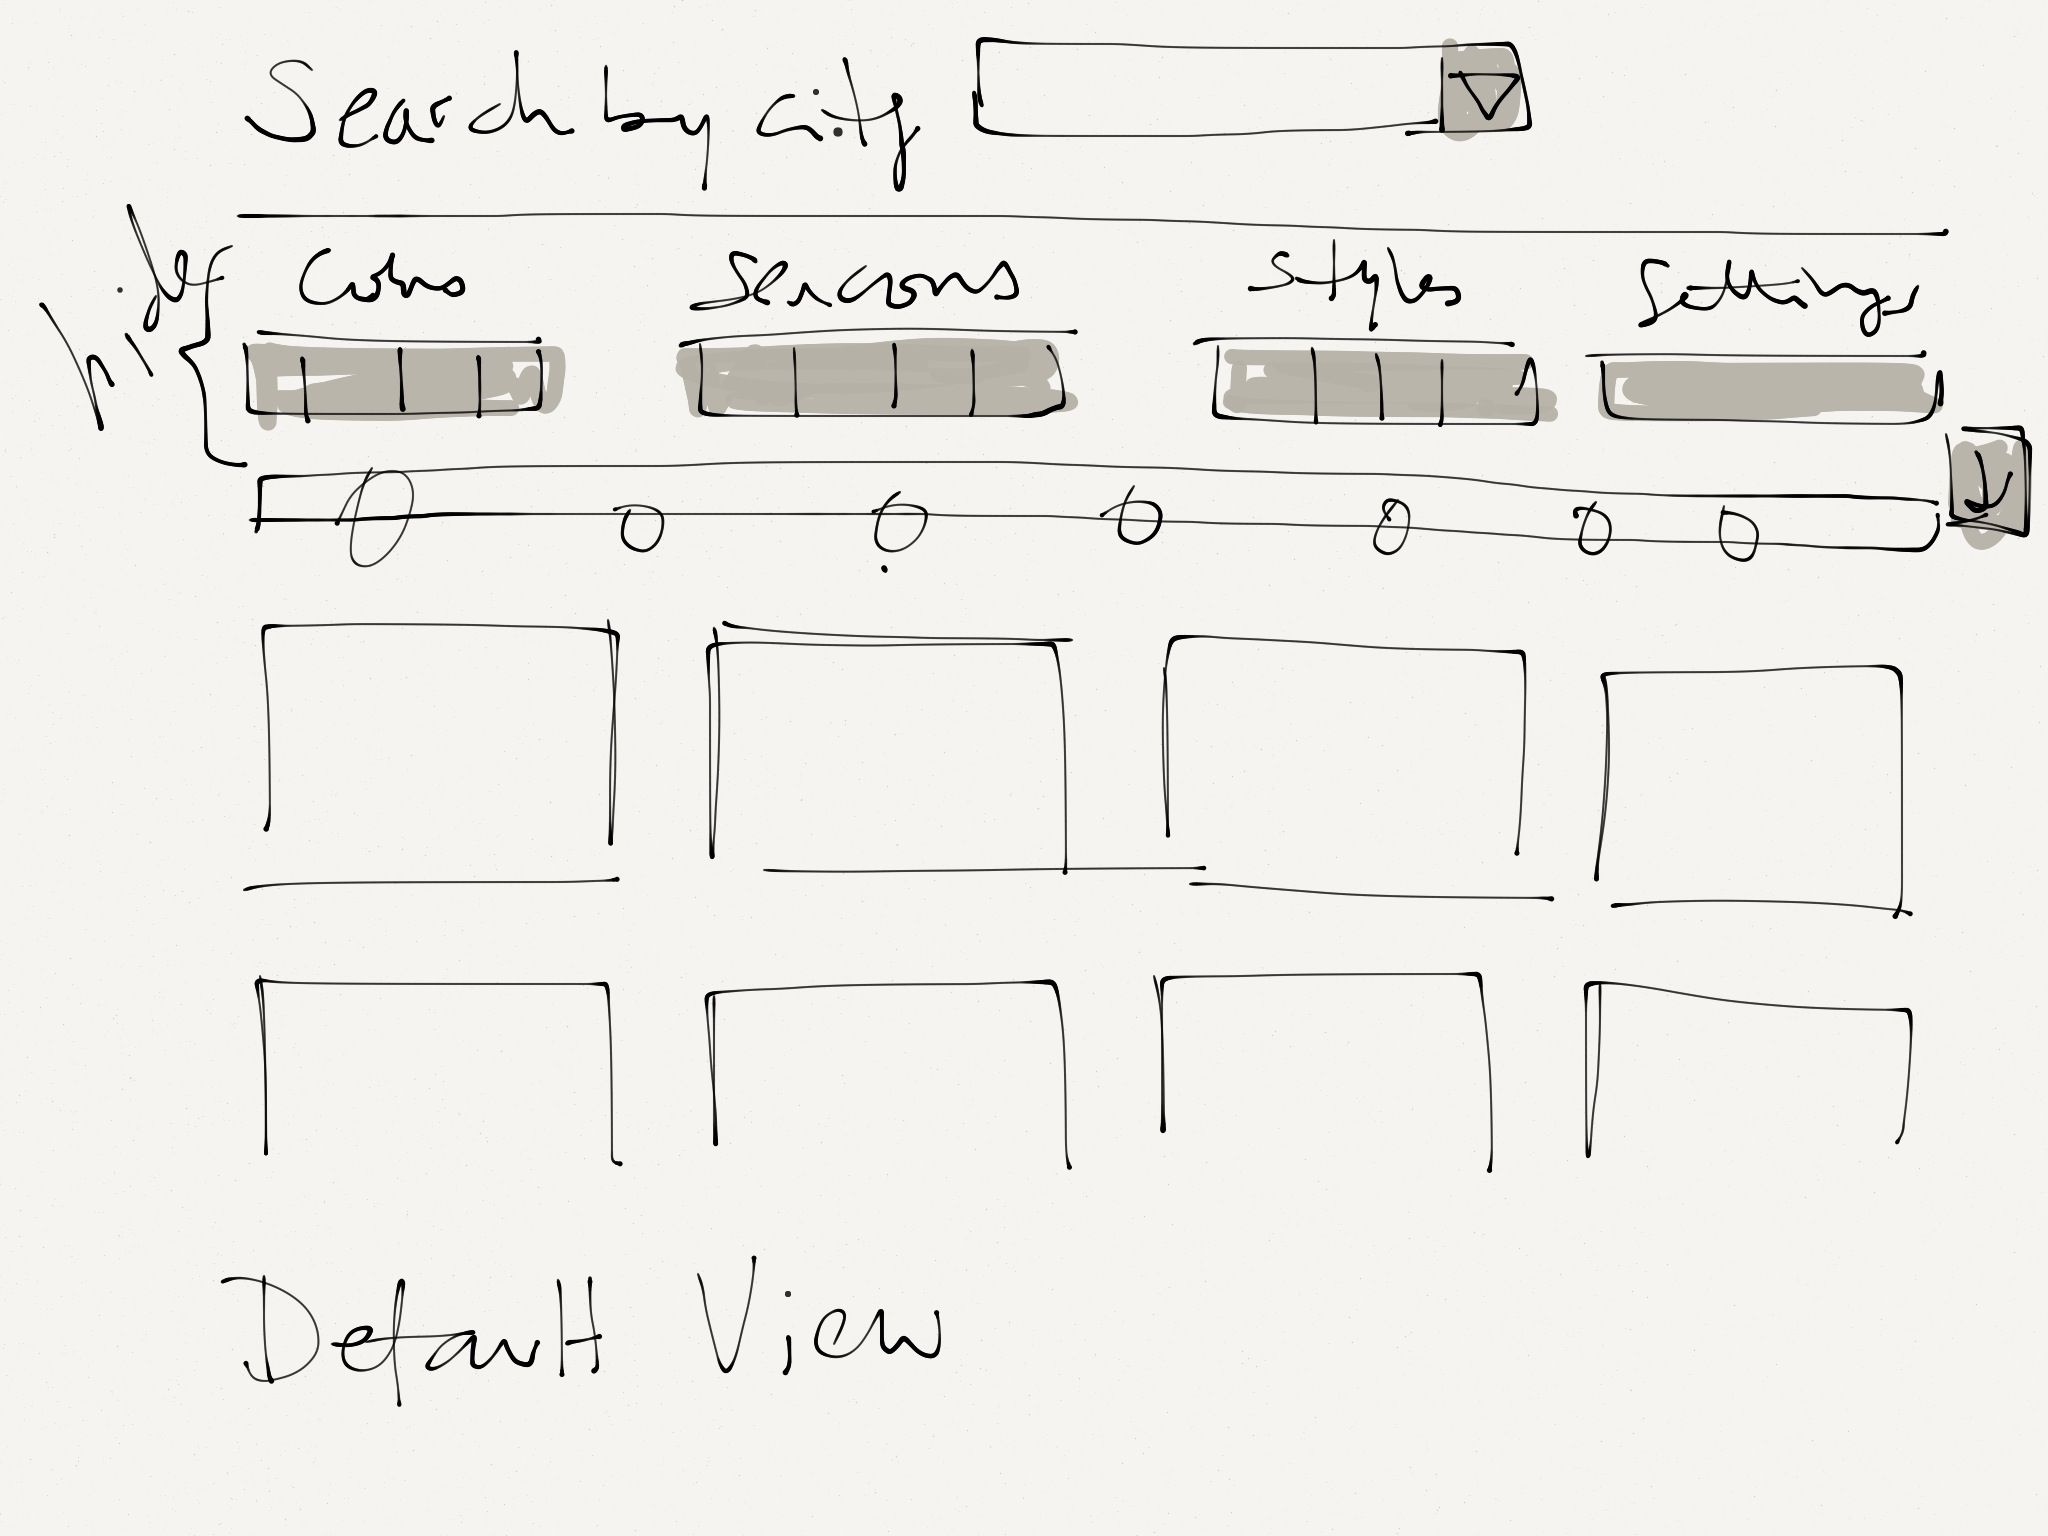 Search by city
hide
Colors Seasons Styles Settings
Default View